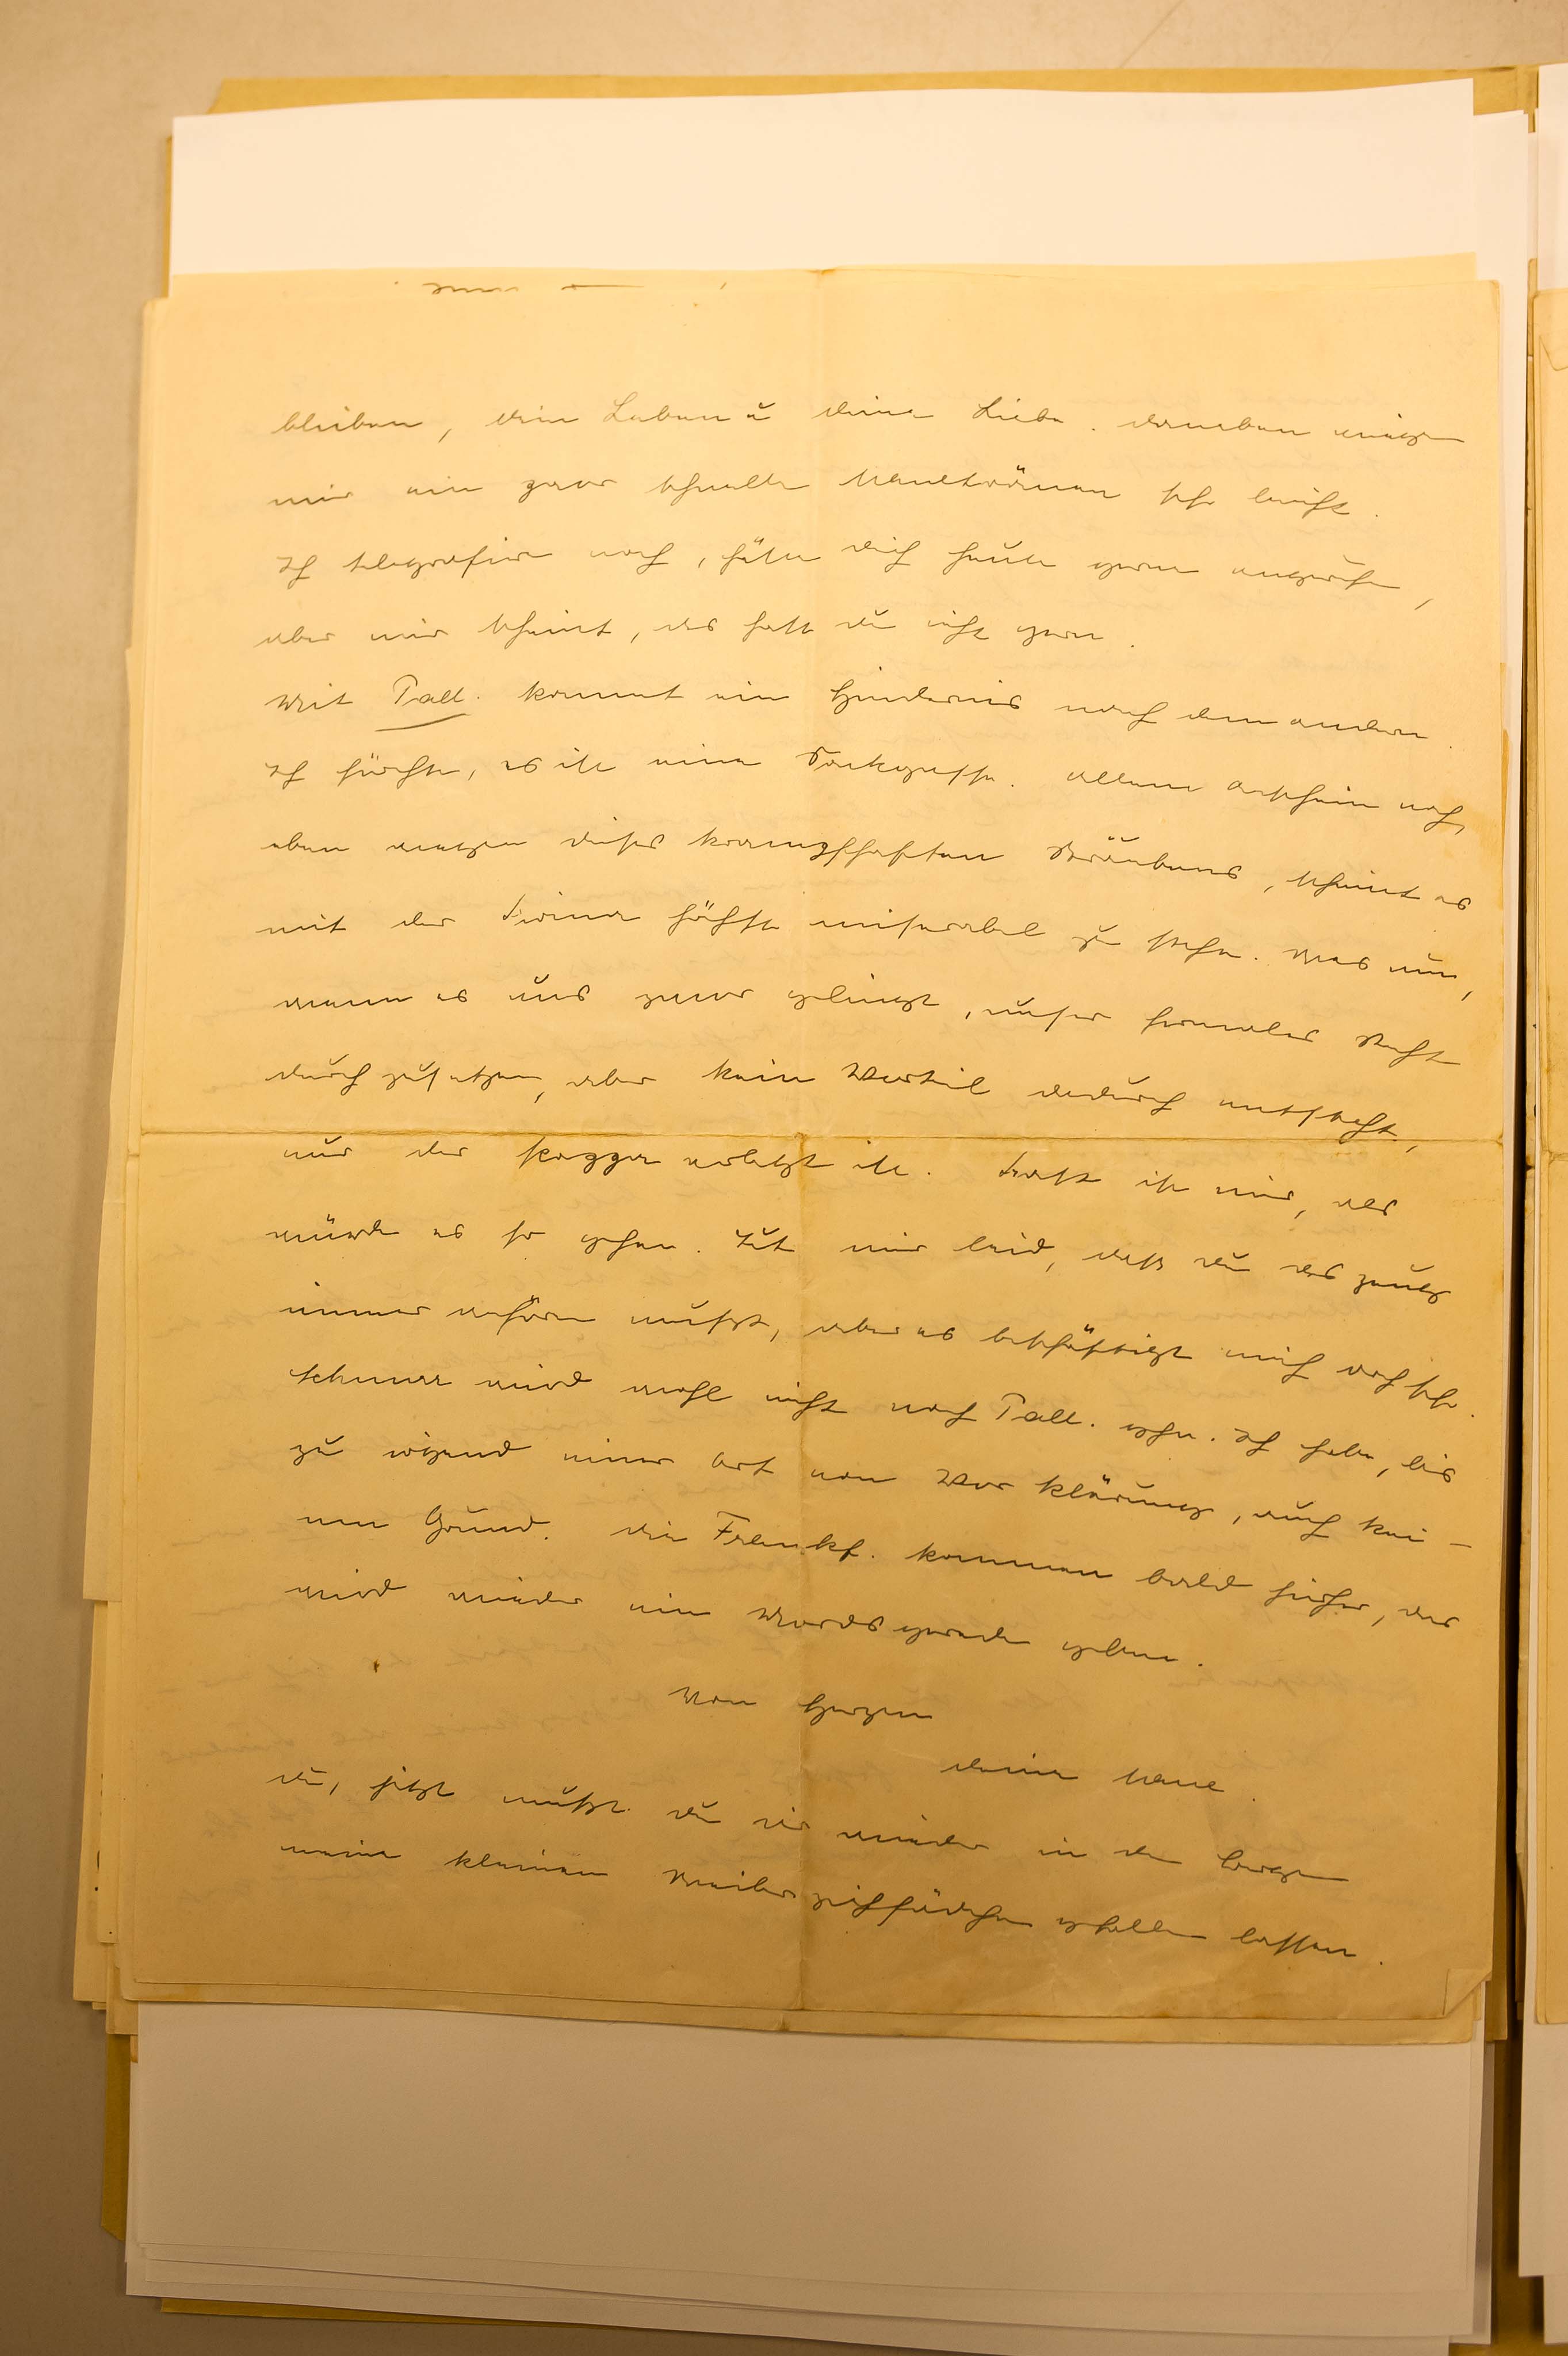 bleiben, dein Leben u deine Liebe. daneben wiegen
mir ein paar schnelle Maultränen sehr leicht.
Ich telegrafiere noch, hätte dich heute gern angerufen,
aber mir scheint, das hast du nicht gern.
Mit Tall. kommt ein Hindernis nach dem andern.
Ich fürchte, es ist eine Sackgasse. Allem Anschein nach,
eben wegen dieses krampfhaften Sträubens, scheint es
mit der Firma höchst miserabel zu stehn. Was nun,
wenn es uns zwar gelingt, unser formales Recht
durchzusetzen, aber kein Vorteil dadurch entsteht,
nur der verletzt ist. Fast ist mir, als
würde es so gehen. Tut mir leid, dass du das Zeug
immer anhören musst, aber es beschäftigt mich doch sehr.
Schnurr wird wohl nicht nach Tall. gehn. Ich habe, bis
zu irgend einer Art von Vor klärung, auch kei-
nen Grund. Die Frankf. kommen bald hierher, das
wird wieder ein Mordsgerede geben.
Von Herzen
deine Maul.
du, jetzt musst du dir wieder in den Bergen
meine kleinen gefallen lassen.